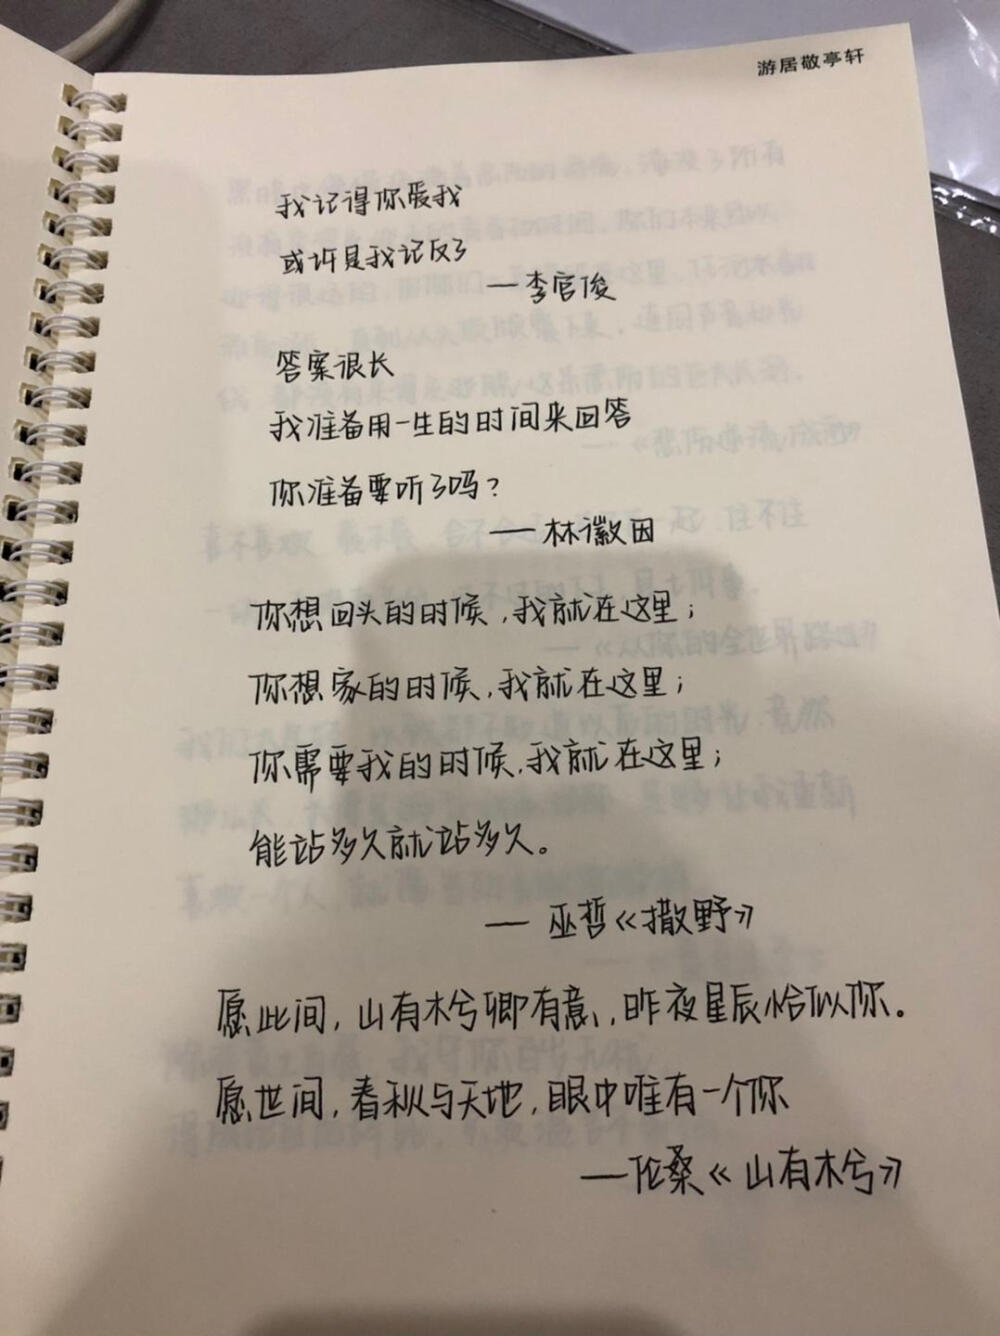 游居敬亭轩
我记得你爱我
或许是我记反了
——李官俊
答案很长
我准备用一生的时间来回答
你准备要听了吗？
——林徽因
你想回头的时候，我就在这里；
你想家的时候，我就在这里；
你需要我的时候，我就在这里；
能站多久就站多久。
——巫哲《撒野》
愿此间，山有木兮卿有意，昨夜星辰恰似你。
愿世间，春秋与天地，眼中唯有一个你
——伦桑《山有木兮》